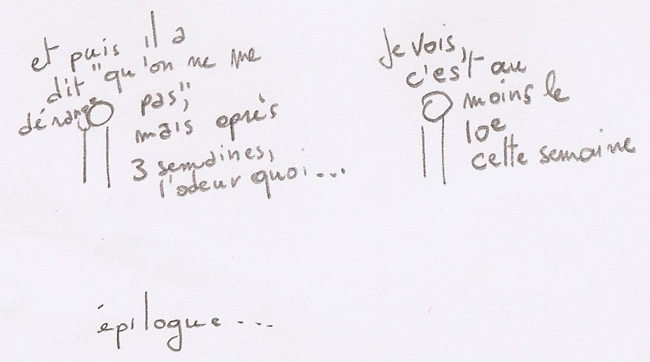 et puis il a
dit "qu'on ne me
dérange pas",
mais après
3 semaines,
l'odeur quoi...
Je vois,
c'est au
moins le
10e
cette semaine
épilogue...